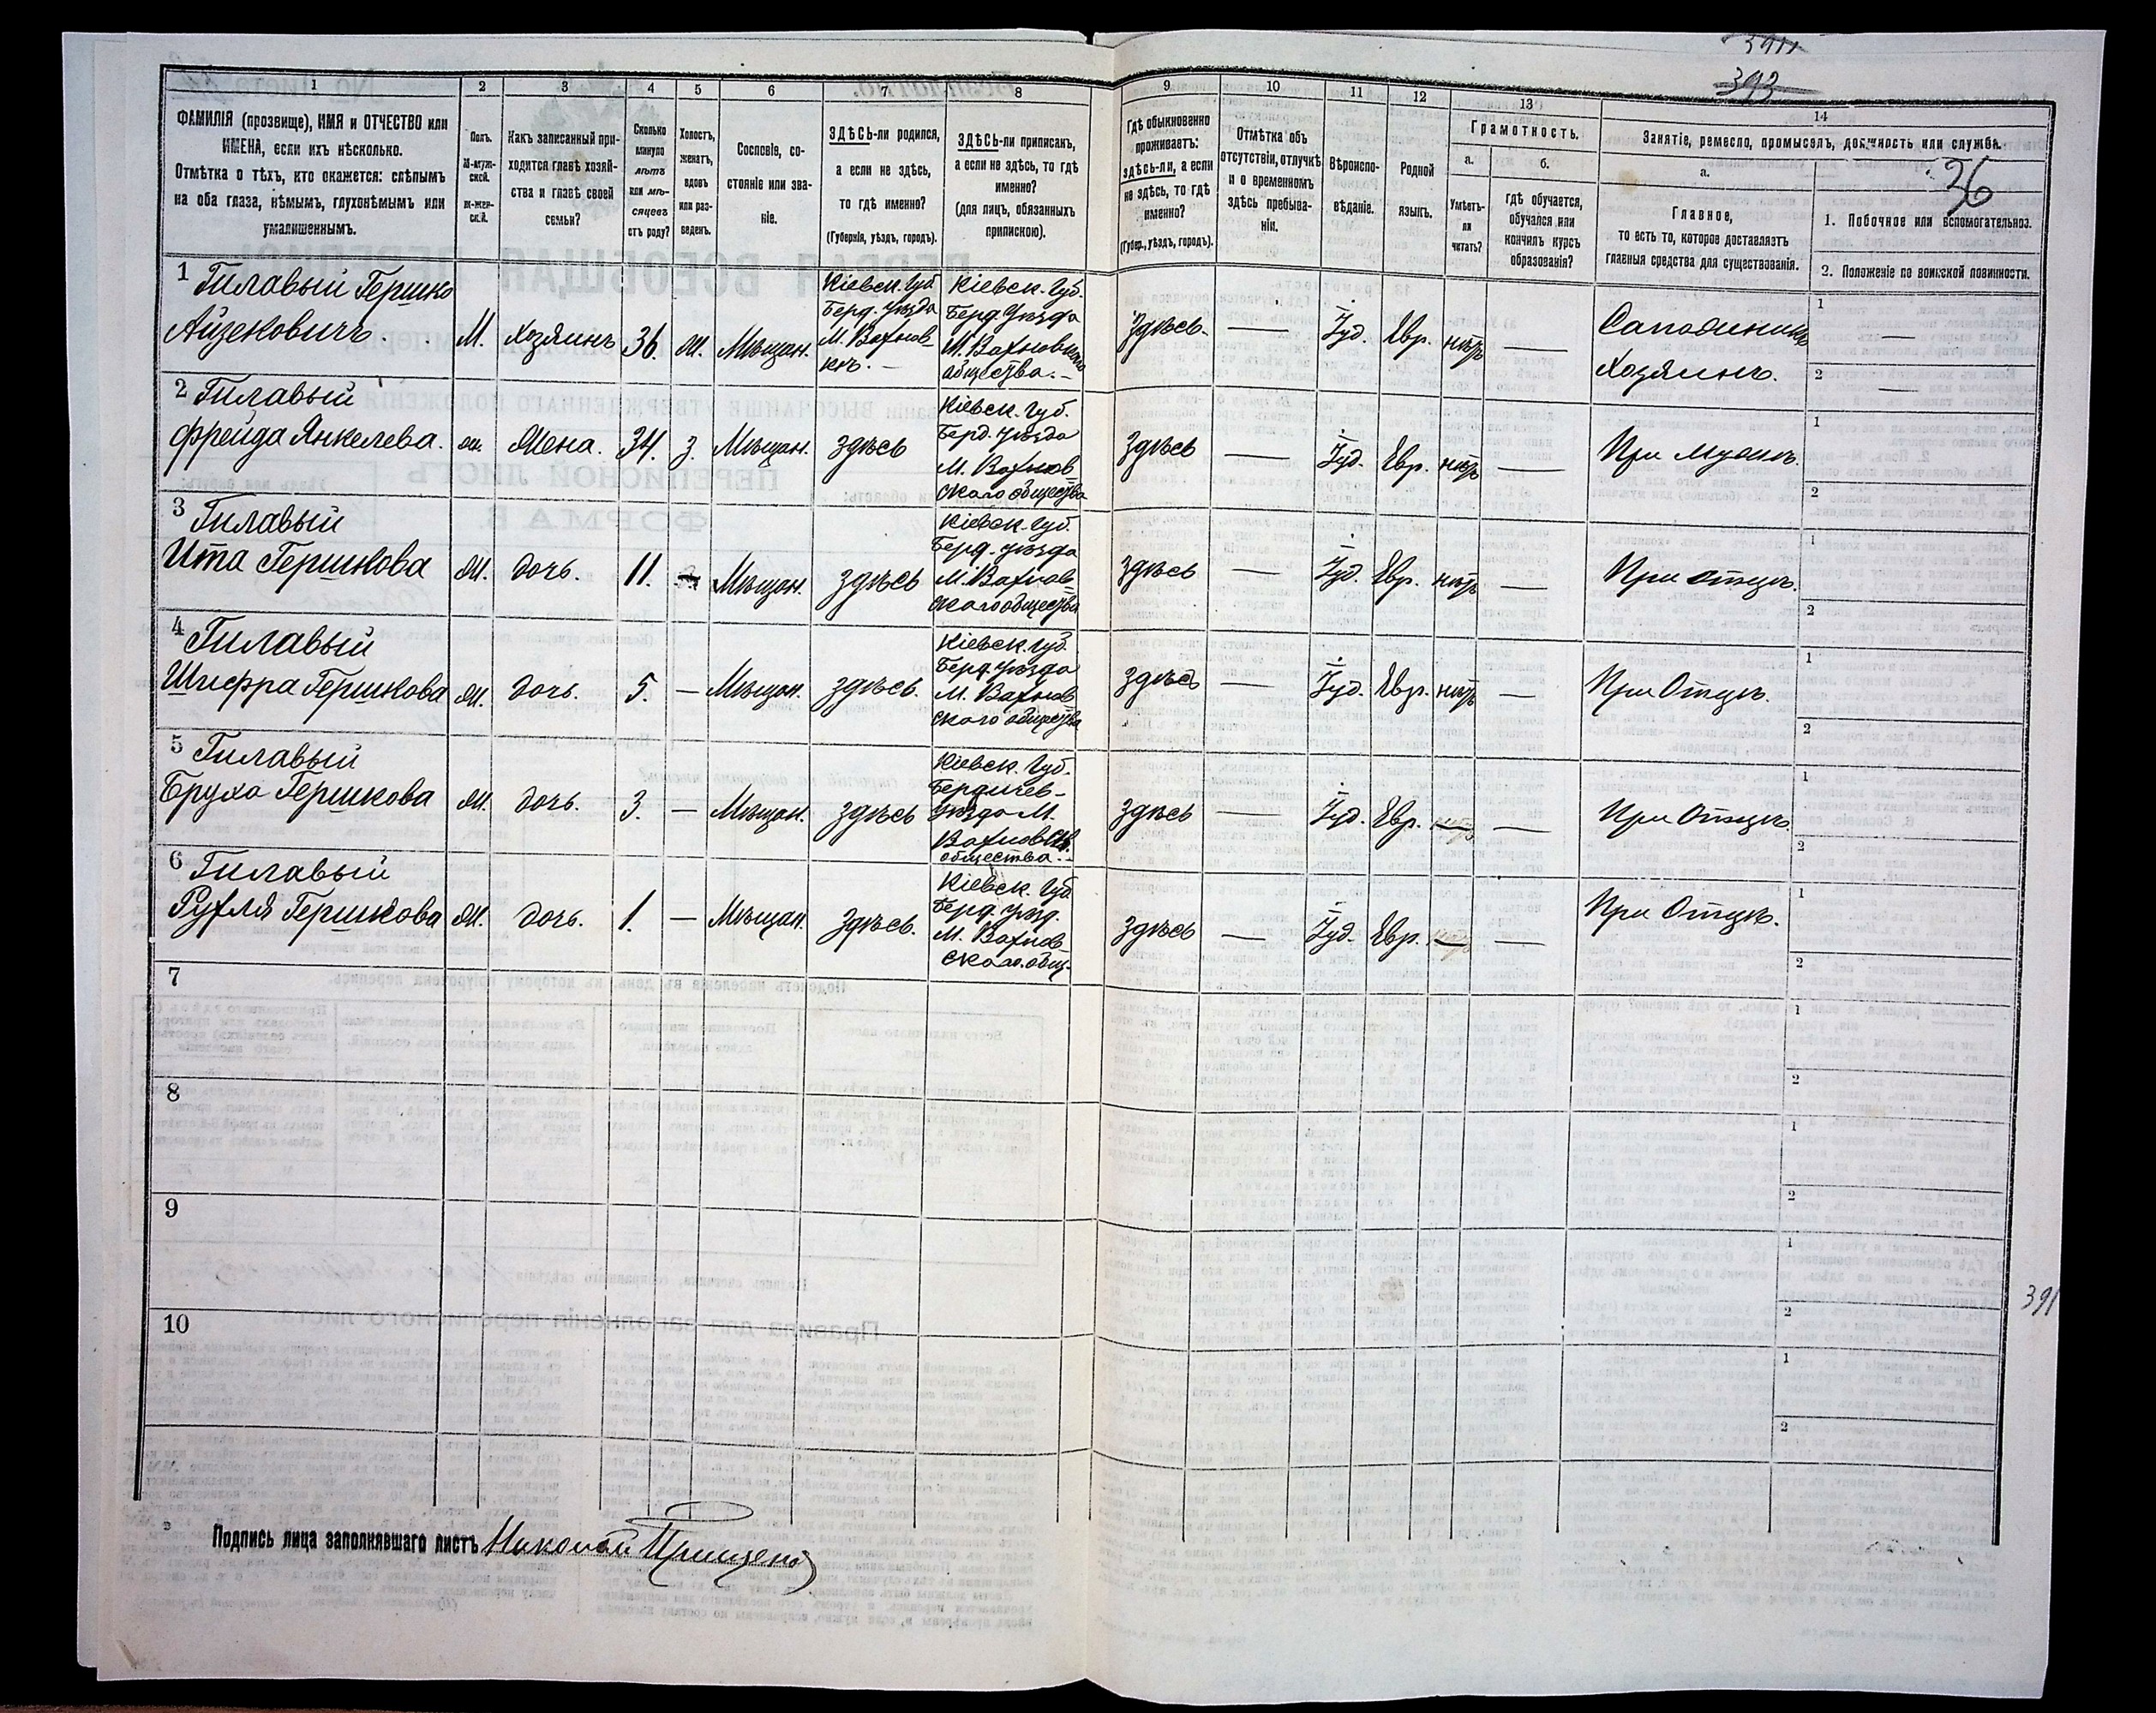 3911
393
1
2
3
4
5
6
7
8
9
10
11
12
13
14
ФАМИЛІЯ (прозвище), ИМЯ и ОТЧЕСТВО или
ИМЕНА, если ихъ нѣсколько.
Отмѣтка о тѣхъ, кто окажется: слѣпымъ
на оба глаза, нѣмымъ, глухонѣмымъ или
умалишеннымъ.
Полъ.
М-муж-
ской.
Ж-жен-
скій.
Какъ записанный при-
ходится главѣ хозяй-
ства и главѣ своей
семьи?
Сколько
минуло
лѣтъ
или мѣ-
сяцевъ
отъ роду?
Холостъ,
женатъ,
вдовъ
или раз-
веденъ.
Сословіе, со-
стояніе или зва-
ніе.
ЗДѢСЬ-ли родился,
а если не здѣсь,
то гдѣ именно?
(Губернія, уѣздъ, городъ).
ЗДѢСЬ-ли приписанъ,
а если не здѣсь, то гдѣ
именно?
(для лицъ, обязанныхъ
припискою).
Гдѣ обыкновенно
проживаетъ:
здѣсь-ли, а если
не здѣсь, то гдѣ
именно?
(Губер., уѣздъ, городъ).
Отмѣтка объ
отсутствіи, отлучкѣ
и о временномъ
здѣсь пребыва-
ніи.
Вѣроиспо-
вѣданіе.
Родной
языкъ.
Грамотность.
а.
б.
Умѣетъ-
ли
читать?
гдѣ обучается,
обучался или
кончилъ курсъ
образованія?
Занятіе, ремесло, промыселъ, должность или служба.
а.
36
Главное,
то есть то, которое доставляетъ
главныя средства для существованія.
1. Побочное или вспомогательное.
2. Положеніе по воинской повинности.
1 Гилавый Гершко
Айзековичъ.
М. Хозяинъ 36. Ж. Мѣщан.
Кіевск. Губ.
Берд. Уѣзда
М. Вахнов-
кѣ. —
Кіевск. Губ.
Берд. Уѣзда
М. Вахновскаго
общества. —
Здѣсь. — Іуд. Евр. нѣтъ —
Сапожникъ
Хозяинъ.
1 —
2 —
2 Гилавый
Фрейда Янкелева. ж. Жена. 34. З. Мѣщан. здѣсь
Кіевск. Губ.
Берд. Уѣзда
М. Вахнов
скаго общества
здѣсь — Іуд. Евр. нѣтъ — При мужѣ.
1
2
3 Гилавый
Ита Гершкова Ж. дочь. 11. — Мѣщан. здѣсь
Кіевск. Губ.
Берд. уѣзда
М. Вахнов-
скаго общества
здѣсь — Іуд. Евр. нѣтъ — При отцѣ.
1
2
4 Гилавый
Шифра Гершкова Ж. дочь. 5. — Мѣщан. здѣсь.
Кіевск. Губ.
Берд. уѣзда
М. Вахнов-
скаго общества
здѣсь — Іуд. Евр. нѣтъ — При Отцѣ.
1
2
5 Гилавый
Бруха Гершкова Ж. дочь. 3. — Мѣщан. здѣсь
Кіевск. Губ.
Бердичев-
уѣзда М.
Вахновск.
общества. —
здѣсь — Іуд. Евр. — — При Отцѣ.
1
2
6 Гилавый
Рухля Гершкова Ж. дочь. 1. — Мѣщан. здѣсь.
Кіевск. Губ
Берд. уѣзд.
М. Вахнов-
скаго. общ.
здѣсь — Іуд. Евр. — — При Отцѣ.
1
2
7
1
2
8
1
2
9
1
2
10
1
2
391
Подпись лица заполнявшаго листъ Николай